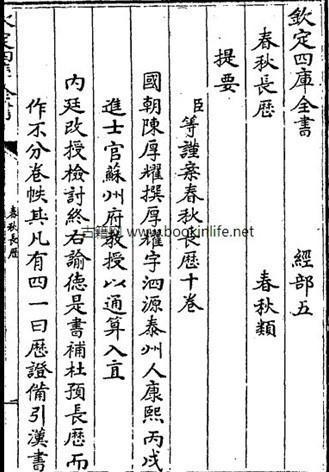 欽定四庫全書
經部五
春秋長歴
春秋類
提要
臣等謹案春秋長歴十卷
國朝陳厚耀撰厚耀字泗源泰州人康熙丙戌
進士官蘇州府教授以通算入直
內廷改授檢討終右諭德是書補杜預長歴而
作不分卷帙其凡有四一曰歴證備引漢書
春秋長歴
www.bookinlife.net